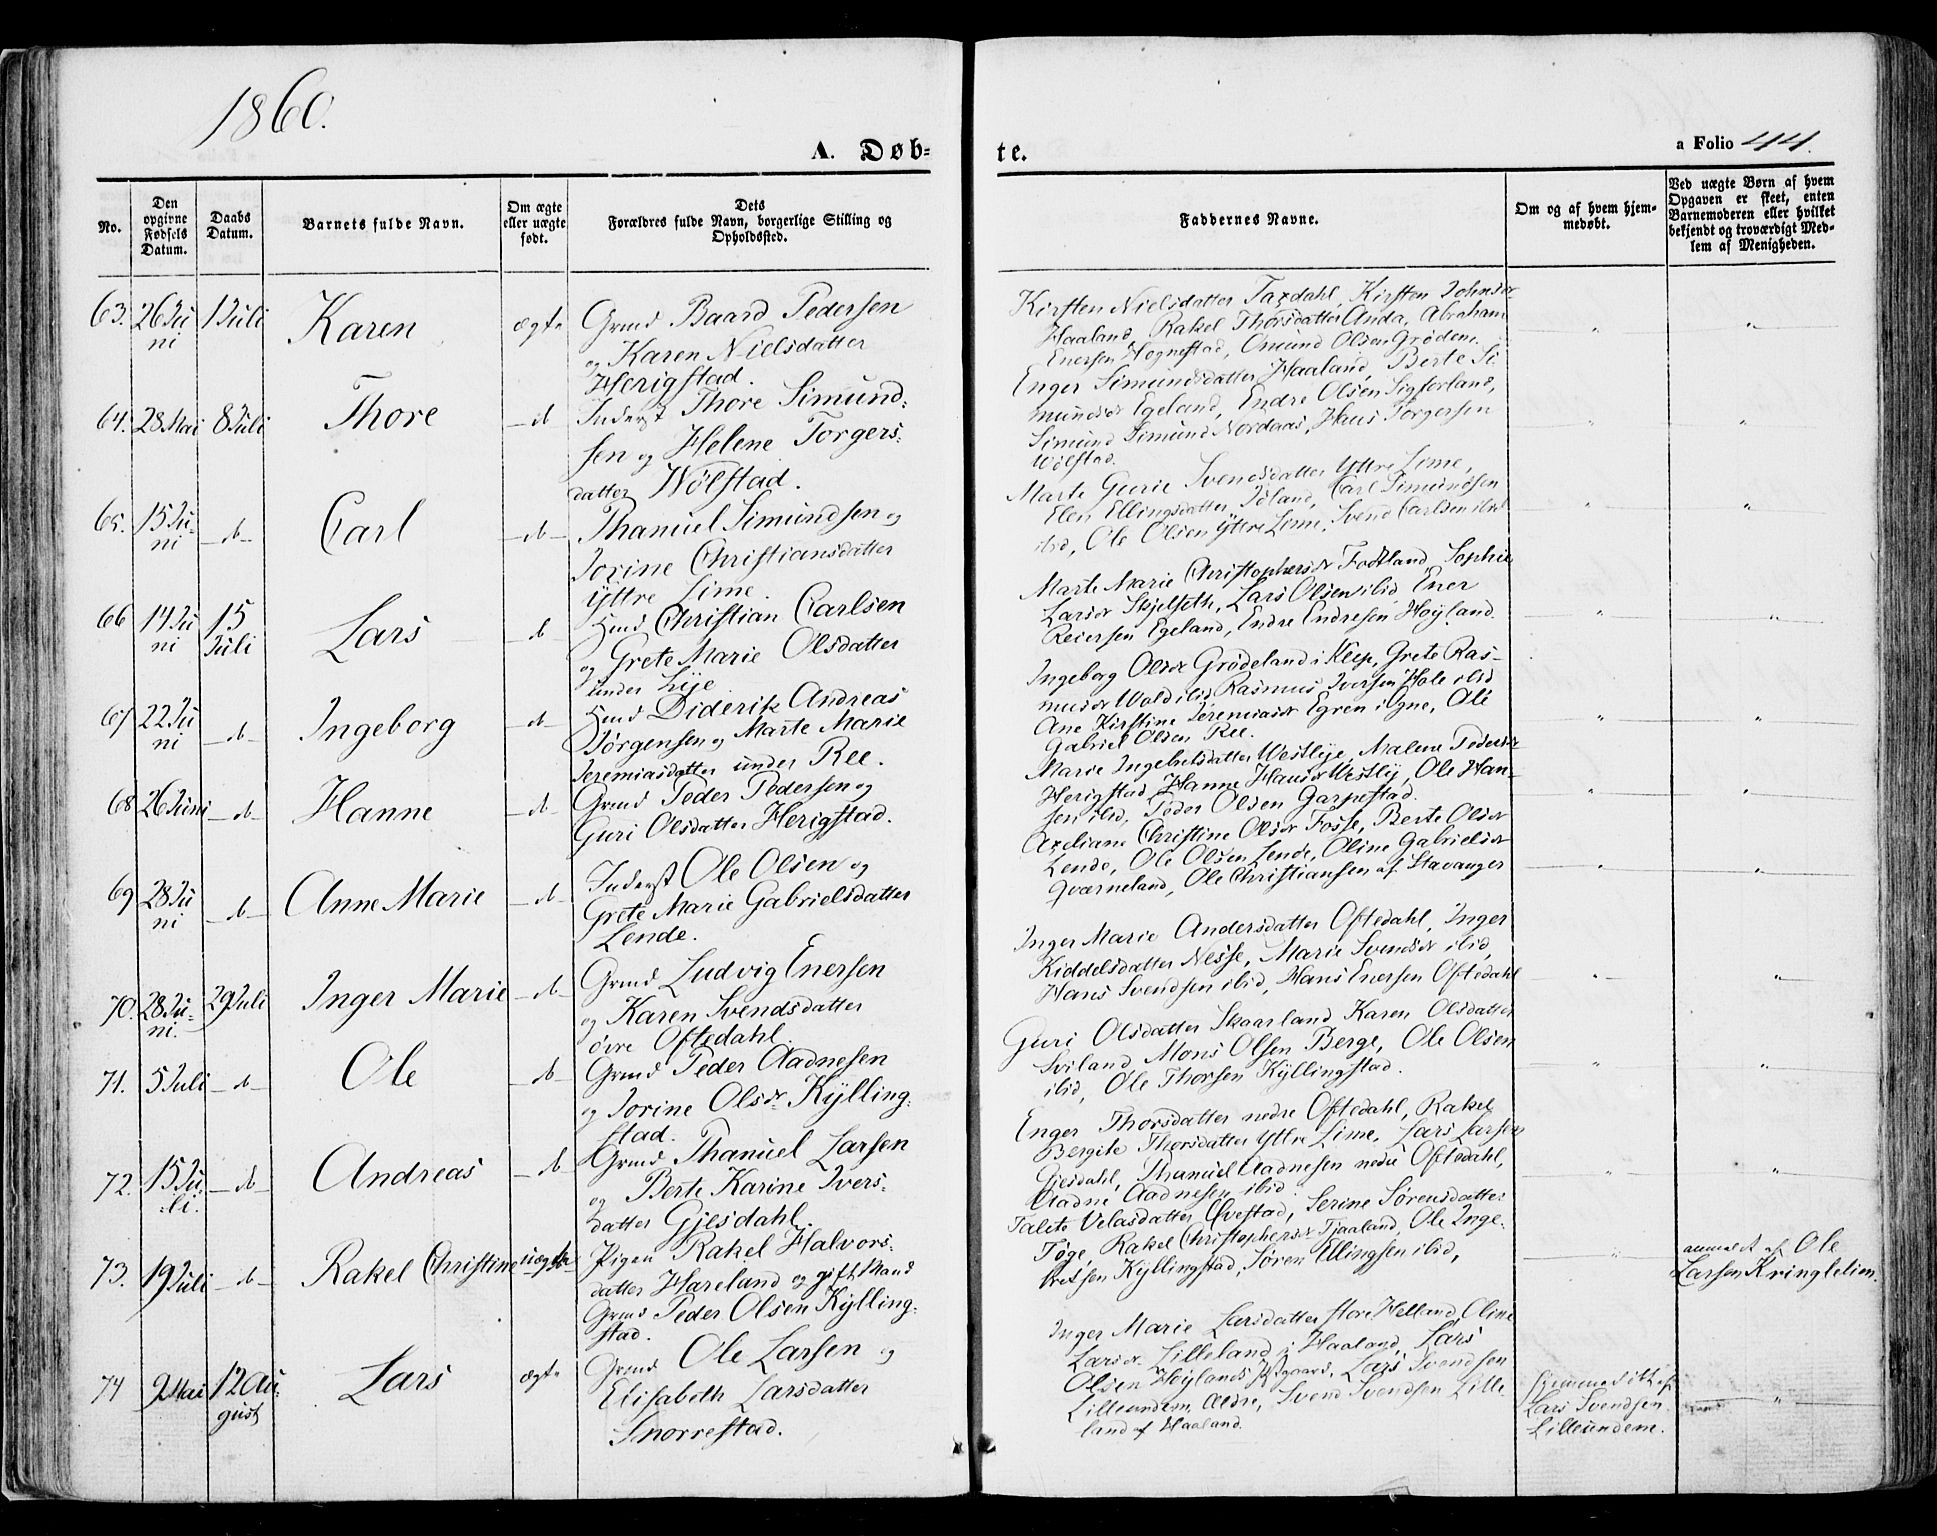 1860.
A. Døb-
te.
a Folio 44.
No.
Den opgivne Fødsels Datum.
Daabs Datum.
Barnets fulde Navn.
Om ægte eller uægte født.
Dets Forældres fulde Navn, borgerlige Stilling og Opholdssted.
Faddernes Navne.
Om og af hvem hjem-
medøbt.
Ved uægte Børn af hvem
Opgaven er skeet, enten
Barnemoderen eller hvilket
bekjendt og troværdigt Med-
lem af Menigheden.
63. 26 Ju
ni
1 Juli
Karen
ægte
Grmd Baard Pedersen
og Karen Nielsdatter
Herigstad.
Kirsten Nielsdatter Taxdahl, Kirsten Johnsdr
Haaland, Rakel Thorsdatter Anda, Abraham
Enersen Hognestad, Omund Olsen Grødem.
64. 28 Mai
8 Juli
Thore
d
Inderst Thore Simund-
sen og Helene Torgers-
datter Nølstad.
Enger Simundsdatter Haaland, Berte Si-
mundsdr Egeland, Endre Olsen Sigferland,
Simund Simund Nordaas, Hans Torgersen
Wølstad.
65. 15 Ju-
ni
d
Carl
d
Thanuel Simundsen og
Jorine Christiansdatter
Yttre Lime.
Marte Gurie Svendsdatter Yttre Lime,
Elen Ellingsdatter Idland, Carl Simundsen
ibid, Ole Olsen Yttre Lime, Svend Carlsen ibid
66 14 Ju
ni
15
Juli
Lars
d
Hmd Christian Carlsen
og Grete Marie Olsdatter
under Lye
Marte Marie Christophersdr Fodtland, Sophie
Larsdr Skjelseth, Lars Olsen ibid, Ener
Reiersen Egeland, Endre Endresen Høyland.
67 22 Ju
ni
d
Ingeborg
d
Hmd Diderik Andreas
Jørgensen og Marte Marie
Jeremiasdatter under Ree.
Ingeborg Olsdr Grødeland i Klep, Grete Ras-
musdr Wold ibid, Rasmus Iversen Hole ibid
Ane Kirstine Jeremiasdr Egren i Ogne, Ole
Gabriel Olsen Ree.
68 26 Juni
d
Hanne
d
Grmd Peder Pedersen og
Guri Olsdatter Herigstad.
Marie Ingebretsdatter Westlye, Malene Pedersdr
Herigstad, Hanne Hansdr Westly, Ole Han-
sen ibid, Peder Olsen Garpestad.
69 28 Ju
ni
d
Anne Marie
d
Inderst Ole Olsen og
Grete Marie Gabrielsdatter
Lende.
Axeliane Christine Olsdr Fosse, Berte Olsdr
Lende, Ole Olsen Lende, Oline Gabrielsdr
Qværneland, Ole Christiansen af Stavanger
70. 28 Ju-
ni.
29 Juli
Inger Marie
d
Grmd Ludvig Enersen
og Karen Svendsdatter
øvre Oftedahl.
Inger Marie Andersdatter Oftedahl, Inger
Kiddelsdatter Nesse, Marie Svendsdr ibid,
Hans Svendsen ibid, Hans Enersen Oftedahl
71. 5 Juli
d
Ole
d
Grmd Peder Aadnesen
og Jorine Olsdr Kylling-
stad.
Guri Olsdatter Skaarland, Karen Olsdatter
Sviland, Mons Olsen Berge, Ole Olsen
ibid, Ole Thorsen Kyllingstad.
72. 15 Ju-
li.
d
Andreas
d
Grmd Thanuel Larsen
og Berte Karine Ivers-
datter Gjesdahl.
Enger Thorsdatter nedre Oftedahl, Rakel
Bergite Thorsdatter Yttre Lime, Lars Larsen
Gjesdahl, Thanuel Aadnesen nedre Oftedahl,
Aadne Aadnesen ibid.
73. 19 Juli
d
Rakel Christine
uægte
Pigen Rakel Halvors-
datter Hareland og gift Mand
Grmd Peder Olsen Kylling-
stad.
Talete Velasdatter Øvestad, Serine Sørensdatter
Tøge, Rakel Christophersdr Tjaaland, Ole Inge-
bretsen Kyllingstad, Søren Ellingsen ibid,
anmeldt af Ole
Larsen Kringlelien.
74 9 Mai
12 Au-
gust
Lars
ægte
Grmd Ole Larsen og
Elisabeth Larsdatter
Snorrestad.
Inger Marie Larsdatter store Helland, Oline
Larsdr Lilleland i Haaland, Lars
Olsen Høylands Pstgaard, Lars Svendsen
Lilleundem, Aldre, Svend Svendsen Lille-
land af Haaland.
hjemmedøbt af
Lars Svendsen
Lilleundene.